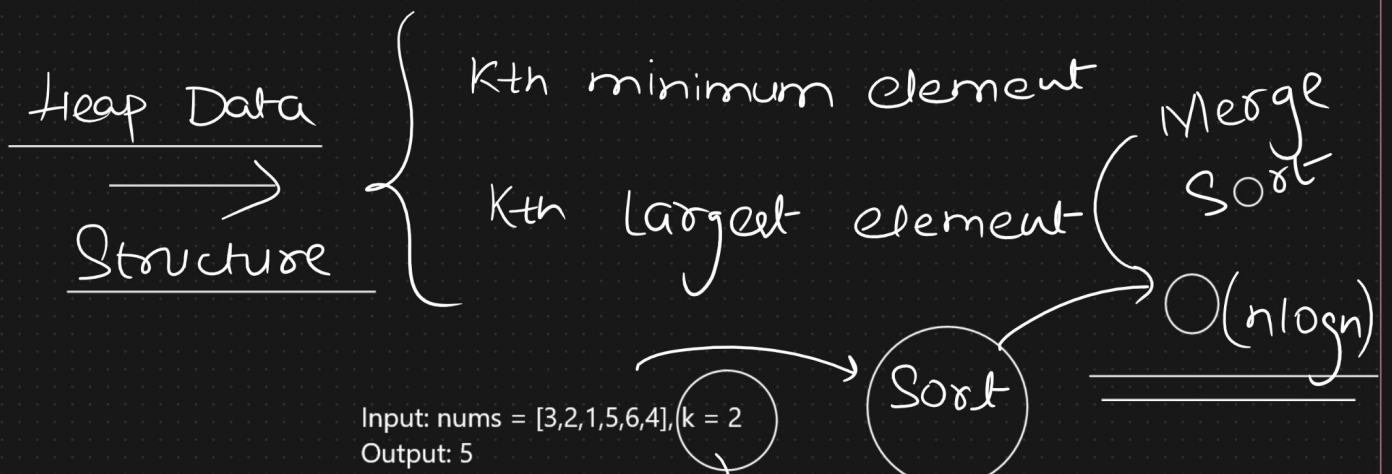 Heap Data
Structure
Kth minimum element
Kth largest element
Merge
Sort
O(nlogn)
Sort
Input: nums = [3,2,1,5,6,4], k = 2
Output: 5